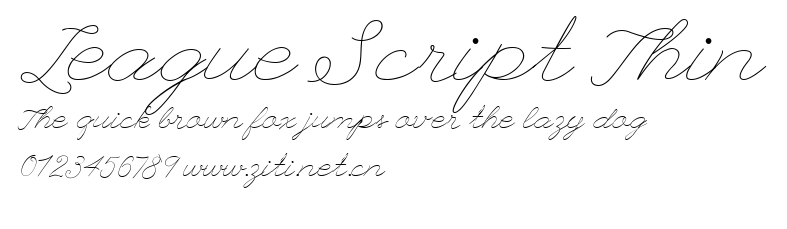 League Script Thin
The quick brown fox jumps over the lazy dog
0123456789 www.ziti.net.cn